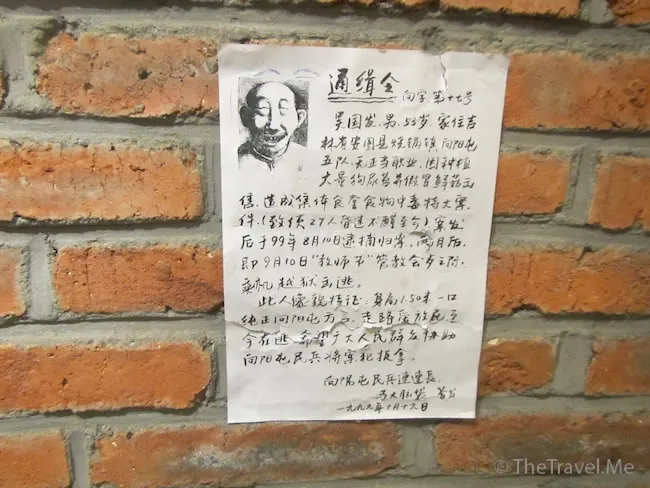 通缉令
向字第十七号
吴国发,男,53岁,家住吉
林省安图县烧锅镇向阳屯
五队,无正当职业,因种植
大量狗尿苔并假冒鲜菇出
售,造成集体食堂食物中毒特大案
件,(致使27人昏迷不醒至今)案发
后于99年8月10日逮捕归案,两月后,
即9月10日"教师节"管教会歺之际,
乘机越狱出逃。
此人像貌特征:身高1.50米一口
纯正向阳屯方言,走路
今在逃,希望广大人民群众协助
向阳屯民兵将案犯捉拿。
向阳屯民兵连连长,
马大 签发
一九九九年十月十六日
© TheTravel.Me